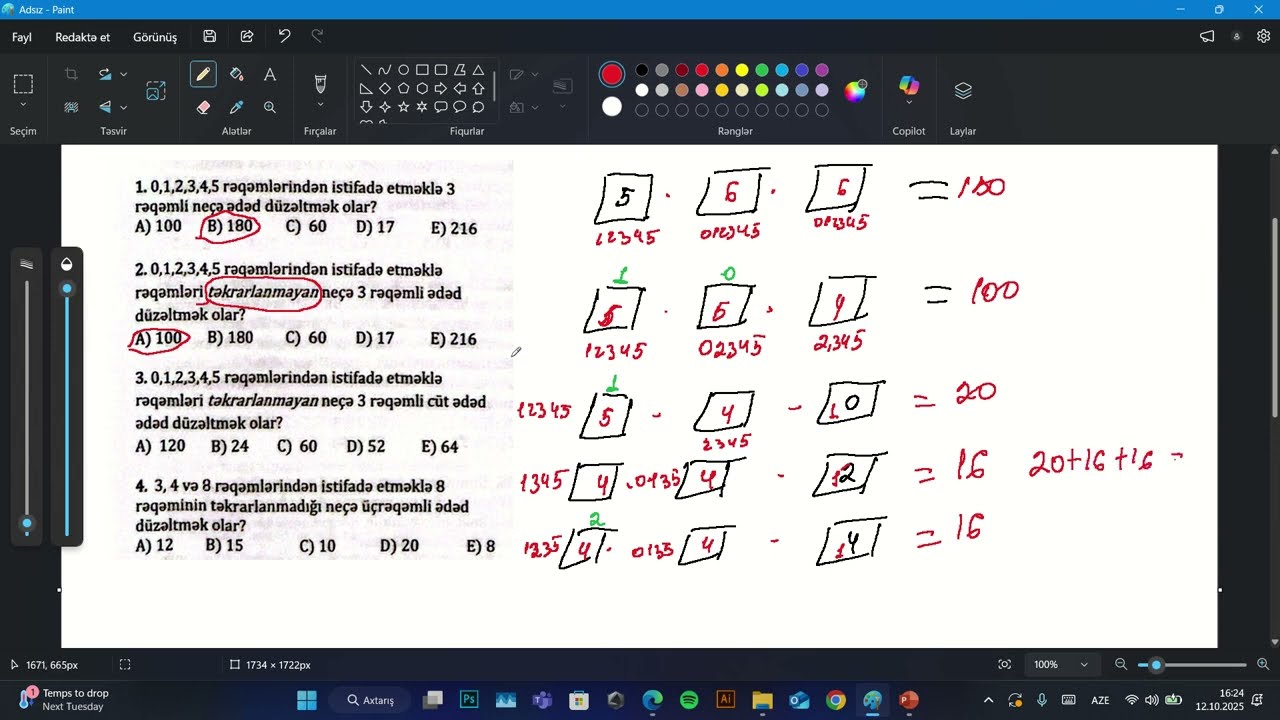 Adsız - Paint
Fayl Redaktə et Görünüş
Seçim Təsvir Alətlər Fırçalar Fiqurlar Rənglər Copilot Laylar
1. 0,1,2,3,4,5 rəqəmlərindən istifadə etməklə 3
rəqəmli neçə ədəd düzəltmək olar?
A) 100 B) 180 C) 60 D) 17 E) 216
2. 0,1,2,3,4,5 rəqəmlərindən istifadə etməklə
rəqəmləri təkrarlanmayan neçə 3 rəqəmli ədəd
düzəltmək olar?
A) 100 B) 180 C) 60 D) 17 E) 216
3. 0,1,2,3,4,5 rəqəmlərindən istifadə etməklə
rəqəmləri təkrarlanmayan neçə 3 rəqəmli cüt ədəd
ədəd düzəltmək olar?
A) 120 B) 24 C) 60 D) 52 E) 64
4. 3, 4 və 8 rəqəmlərindən istifadə etməklə 8
rəqəminin təkrarlanmadığı neçə üçrəqəmli ədəd
düzəltmək olar?
A) 12 B) 15 C) 10 D) 20 E) 8
5 · 6 · 6 = 180
12345 012345 012345
1 0
5 · 5 · 4 = 100
12345 02345 2,345
1
12345 5 - 4 - 10 = 20
2345
1345 4 · 0135 4 - 12 = 16 20+16+16 =
2
1235 4 · 0135 4 - 14 = 16
1671, 665px 1734 × 1722px 100%
1 Temps to drop
Next Tuesday
Axtarış
AZE
16:24
12.10.2025